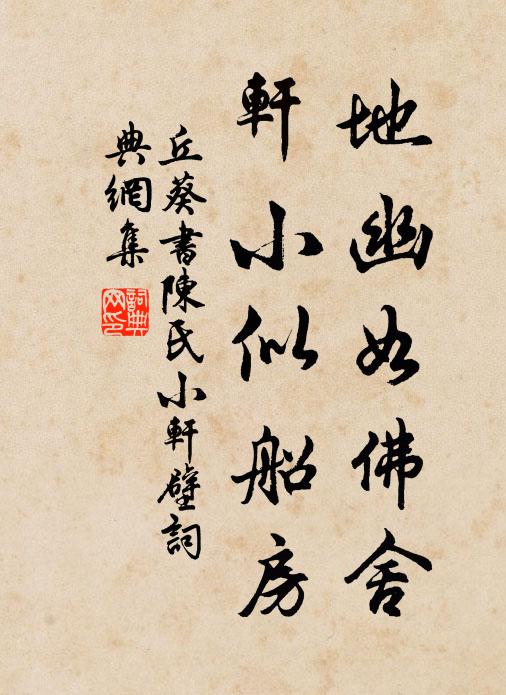 地幽如佛舍
軒小似船房
丘葵書陳氏小軒壁詞
典網集
詞典網印